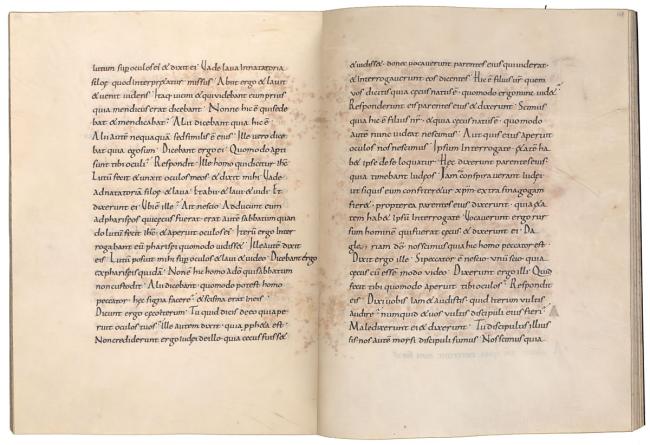 lutum sup oculos ei & dixit ei · Vade laua innatatoria
siloę quod interpr&atur missus · Abiit ergo & lauit
& uenit uidens · Itaq· uicini & qui uidebant eum prius
quia mendicus erat dicebant · Nonne hic ē qui sede
bat & mendicabat · Alii dicebant quia hic ē ·
Alii autē nequaquā sed similis ē eius · Ille uero dice
bat quia ego sum · Dicebant ergo ei · Quomodo aperti
sunt tibi oculi · Respondit · Ille homo qui dicitur ihs̄
Lutū fecit & unxit oculos meos & dixit mihi Vade
ad natatoria siloę & laua · & abii & laui & uidi Et
dixerunt ei · Vbi ē ille · Ait nescio · Adducunt eum
ad phariseos qui cęcus fuerat · erat autē sabbatum quan
do lutū fecit ihs̄ · & aperuit oculos ei · Iterū ergo inter
rogabant eū pharisei quomodo uidiss& · Ille autē dixit
eis · Lutū posuit mihi sup oculos & laui & uideo · Dicebant ergo
ex phariseis quidā · Non ē hic homo a dō qui sabbatum
non custodit · Alii dicebant · quomodo potest homo
peccator · hęc signa facere · & scisma erat in eis ·
Dicunt ergo cęco iterum · Tu quid dicis de eo qui ape
ruit oculos tuos · Ille autem dixit · quia pph&a est ·
Non crediderunt ergo iudei de illo · quia cęcus fuiss&
& uidiss& · donec uocauerunt parentes eius qui uiderat ·
& interrogauerunt eos dicentes · Hic ē filius ur̄ quem
uos dicitis quia cęcus natus ē · quomodo ergo nunc uid&
Responderunt eis parentes eius & dixerunt · Scimus
quia hic ē filius nr̄ · & quia cęcus natus ē · quomodo
autē nunc uideat nescimus · Aut quis eius aperuit
oculos nos nescimus · Ipsum Interrogate · &atē ha
b& ipse de se loquatur · Hęc dixerunt parentes eius ·
quia timebant iudeos · Iam conspirauerant iudei
ut si quis eum confiter&ur xp̄m · extra sinagogam
fier& · propterea parentes eius dixerunt · quia &a
tem hab& ipsū Interrogate · Vocauerunt ergo rur
sum hominē qui fuerat cęcus & dixerunt ei · Da
gloriam dō · nos scimus quia hic homo peccator est ·
Dixit ergo ille · Si peccator ē nescio · unū scio · quia
cęcus cū essē modo uideo · Dixerunt ergo illi · Quid
fecit tibi quomodo aperuit tibi oculos · Respondit
eis · Dixi uobis iam & audistis · quid iterum uultis
audire · numquid & uos uultis discipuli eius fieri ·
Maledixerunt ei & dixerunt · Tu discipulus illius
sis nos autē moysi discipuli sumus · Nos scimus quia